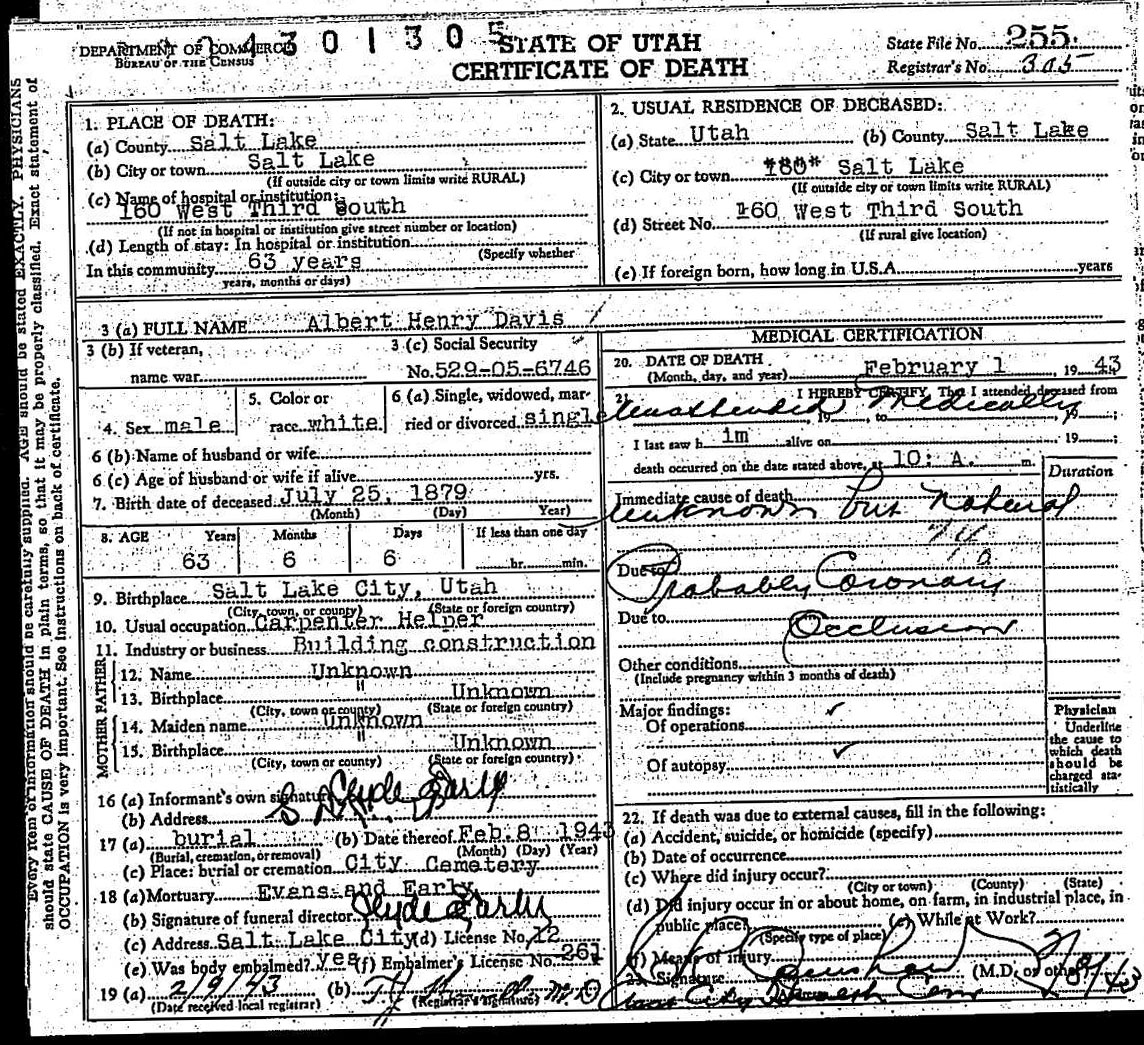 DEPARTMENT OF COMMERCE
BUREAU OF THE CENSUS
4 3 0 1 3 0 5
STATE OF UTAH
CERTIFICATE OF DEATH
State File No. 255
Registrar's No. 305
Every item of information should be carefully supplied. AGE should be stated EXACTLY. PHYSICIANS
should state CAUSE OF DEATH in plain terms, so that it may be properly classified. Exact statement of
OCCUPATION is very important. See instructions on back of certificate.
1. PLACE OF DEATH:
(a) County Salt Lake
(b) City or town Salt Lake
(If outside city or town limits write RURAL)
(c) Name of hospital or institution:
160 West Third South
(If not in hospital or institution give street number or location)
(d) Length of stay: In hospital or institution
(Specify whether
In this community 63 years
years, months or days)
2. USUAL RESIDENCE OF DECEASED:
(a) State Utah (b) County Salt Lake
(c) City or town Salt Lake
(If outside city or town limits write RURAL)
(d) Street No. 160 West Third South
(If rural give location)
(e) If foreign born, how long in U.S.A. years
3 (a) FULL NAME Albert Henry Davis
3 (b) If veteran,
name war
3 (c) Social Security
No. 529-05-6746
4. Sex male
5. Color or
race white
6 (a) Single, widowed, mar-
ried or divorced single
6 (b) Name of husband or wife
6 (c) Age of husband or wife if alive yrs.
7. Birth date of deceased July 25, 1879
(Month) (Day) Year)
8. AGE Years Months Days If less than one day
63 6 6 hr. min.
9. Birthplace Salt Lake City, Utah
(City, town, or county) (State or foreign country)
10. Usual occupation Carpenter Helper
11. Industry or business Building construction
FATHER
12. Name Unknown
13. Birthplace " Unknown
(City, town or county) (State or foreign country)
MOTHER
14. Maiden name unknown
15. Birthplace " Unknown
(City, town or county) (State or foreign country)
16 (a) Informant's own signature Clyde Early
(b) Address
17 (a) burial (b) Date thereof Feb. 8 1943
(Burial, cremation, or removal) (Month) (Day) (Year)
(c) Place: burial or cremation City Cemetery
18 (a) Mortuary Evans and Early
(b) Signature of funeral director Clyde Early
(c) Address Salt Lake City (d) License No. 12
(e) Was body embalmed? yes (f) Embalmer's License No. 261
19 (a) 2/9/43 (b)
(Date received local registrar) (Registrar's signature)
MEDICAL CERTIFICATION
20. DATE OF DEATH February 1, 1943
(Month, day, and year)
21. I HEREBY CERTIFY, That I attended deceased from
Unattended Medically
, 19 , to , 19 ;
I last saw h im alive on 19 ;
death occurred on the date stated above, at 10: A. m.
Duration
Immediate cause of death
unknown but Natural
Due to
Probably Coronary
Due to
Occlusion
Other conditions
(Include pregnancy within 3 months of death)
Major findings:
Of operations
Of autopsy
Physician
Underline
the cause to
which death
should be
charged sta-
tistically
22. If death was due to external causes, fill in the following:
(a) Accident, suicide, or homicide (specify)
(b) Date of occurrence
(c) Where did injury occur?
(City or town) (County) (State)
(d) Did injury occur in or about home, on farm, in industrial place, in
public place? (e) While at Work?
(Specify type of place)
(f) Means of injury
23. Signature (M.D. or other)
City Health Com